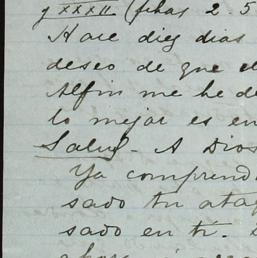 y XXXII (fhas 2. 5
Hace diez dias
deseo de que el
Alfin me he de
lo mejor es en
Salud. - A Dios
Ya comprend
sado tu atag
sado en ti.